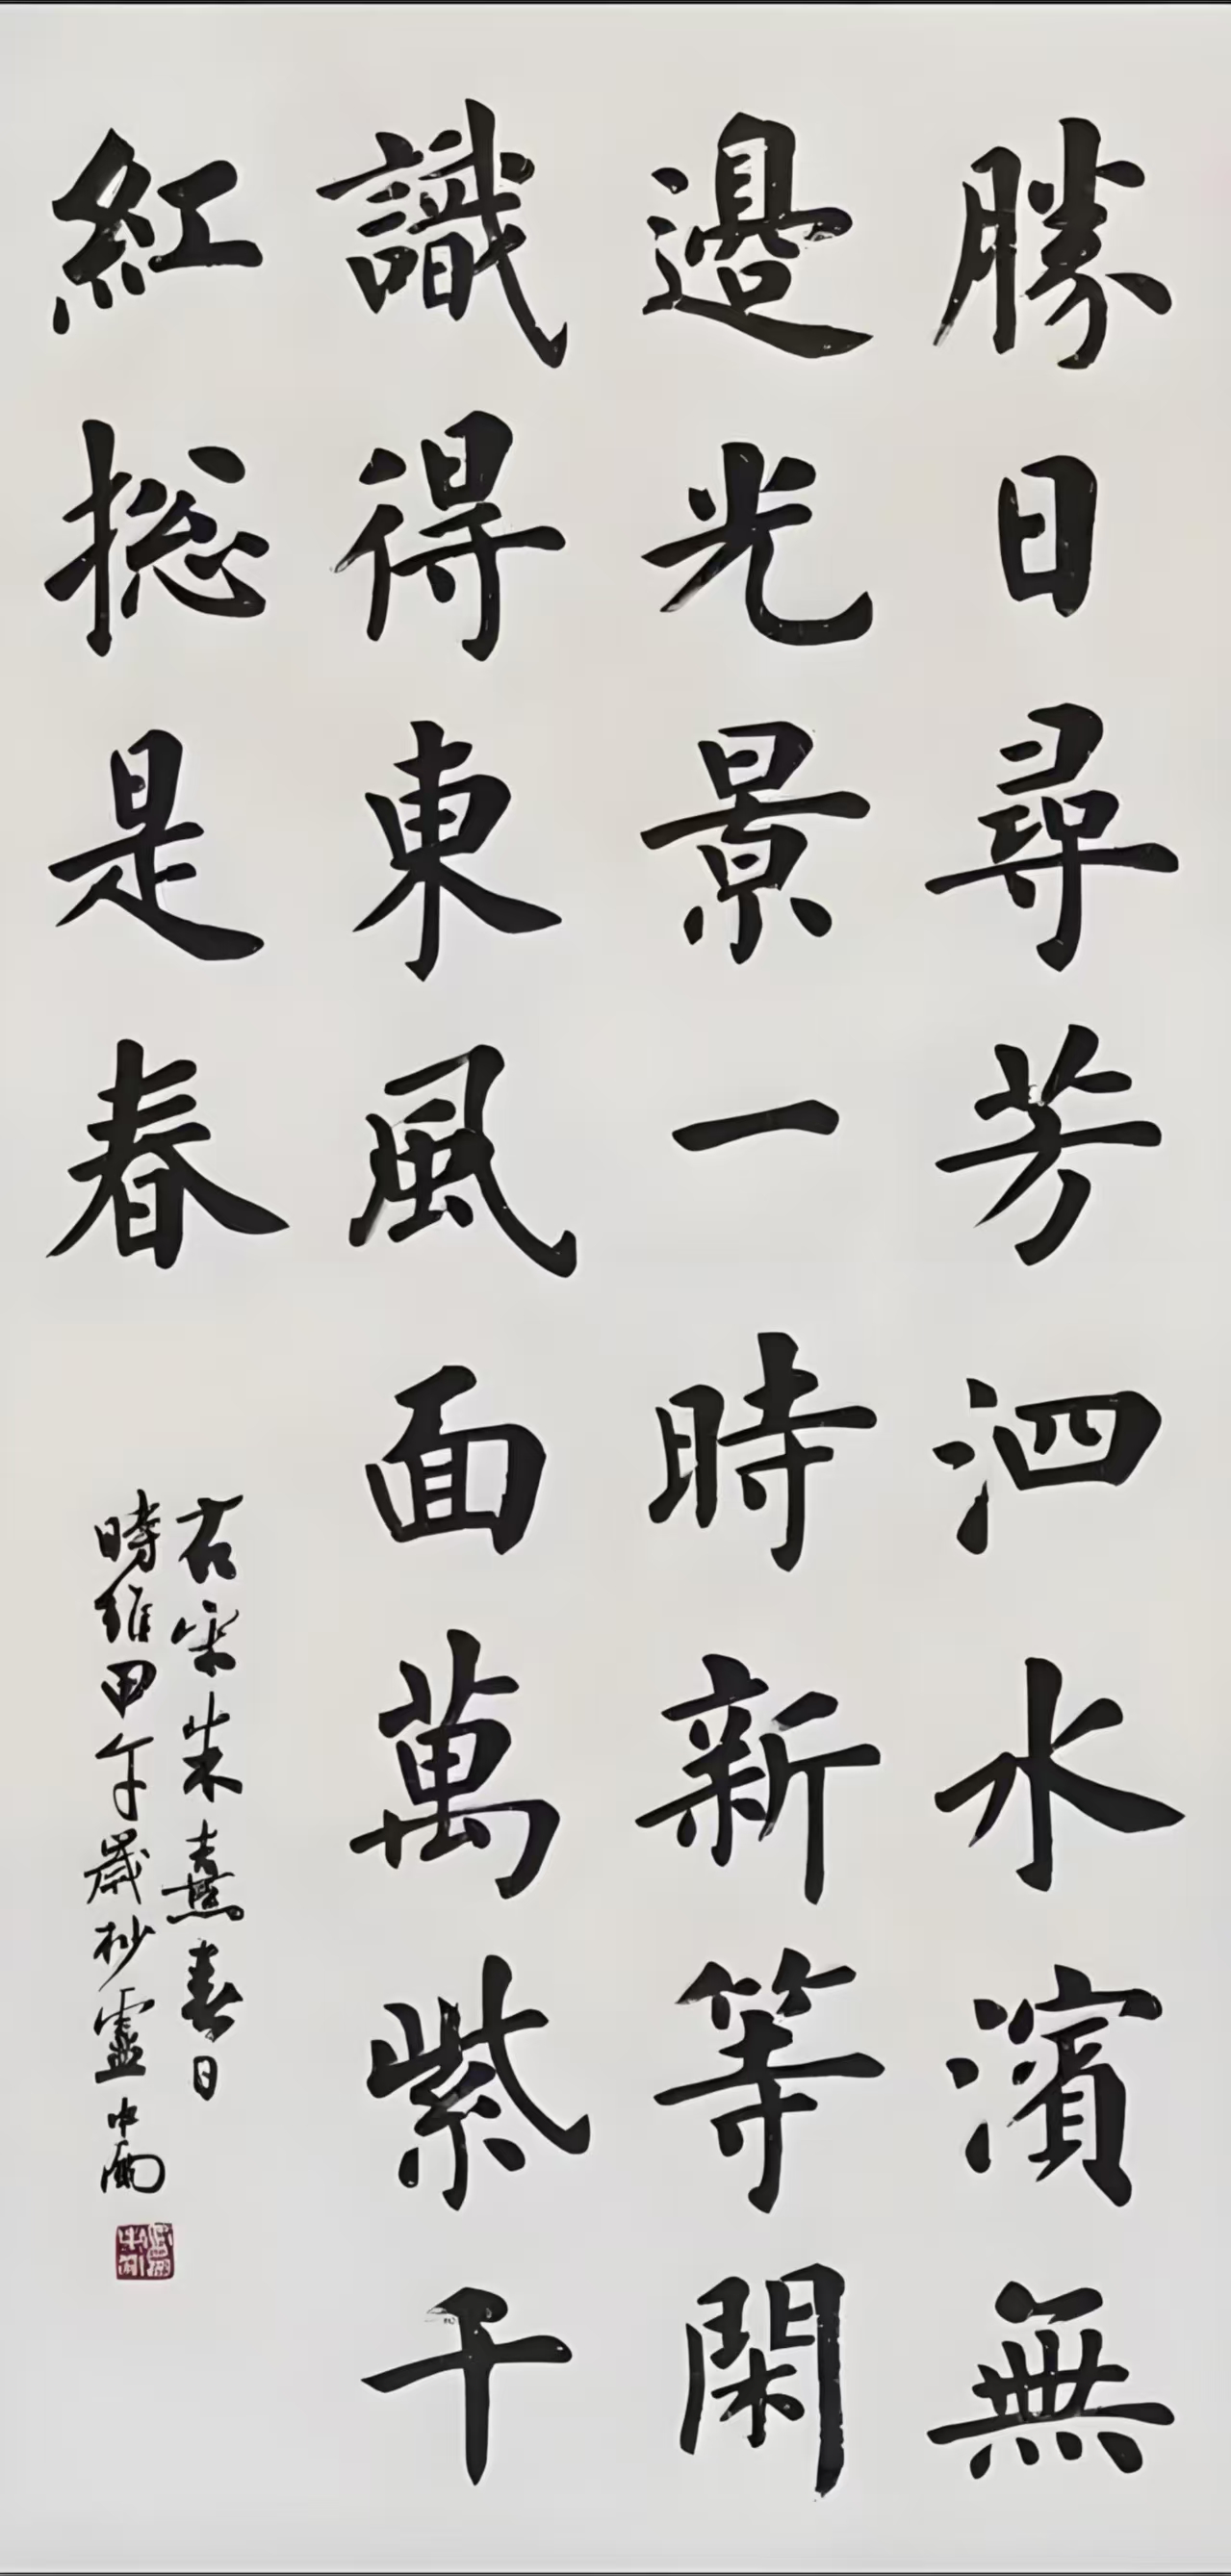 勝日尋芳泗水濱無
邊光景一時新等閑
識得東風面萬紫千
紅捴是春
右宋朱熹春日
時維甲午歲杪靈